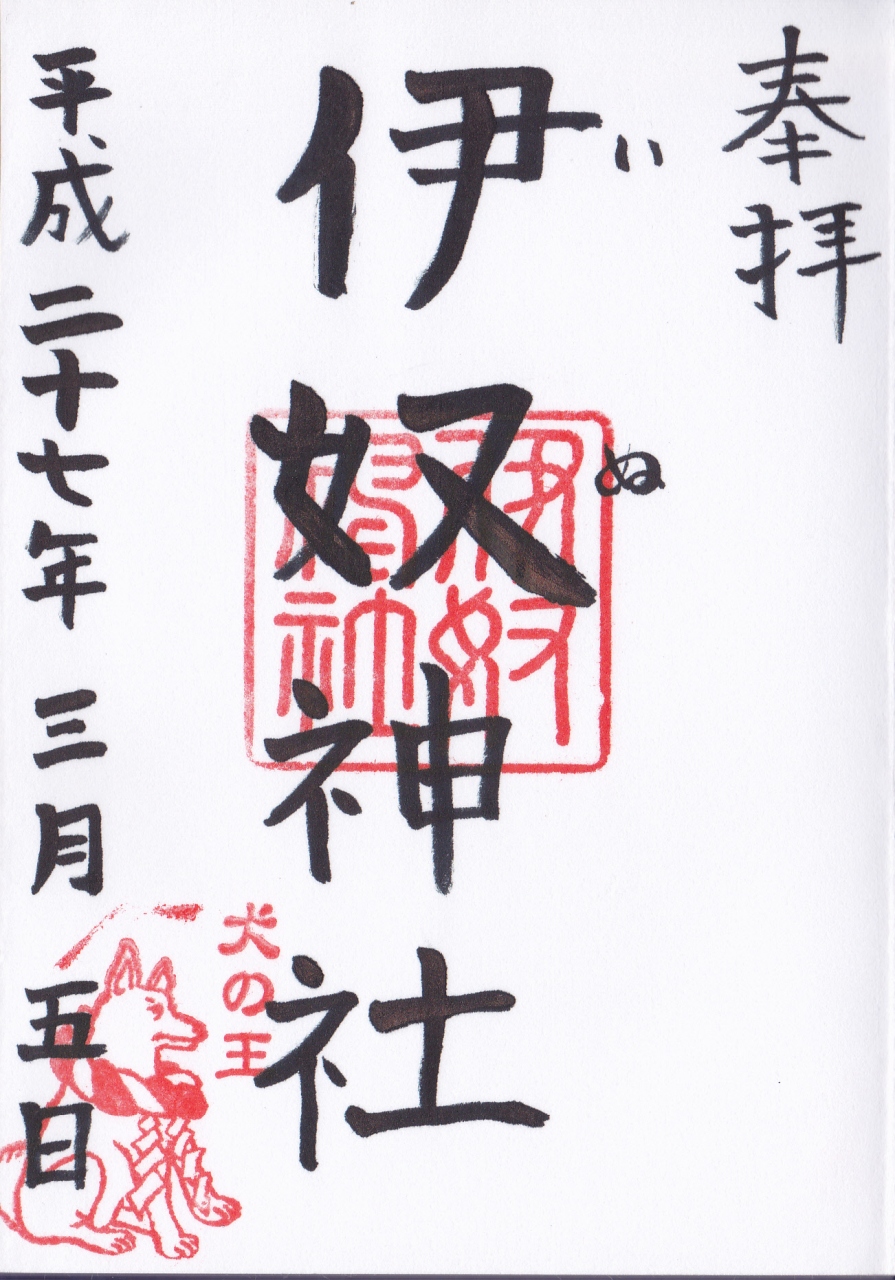 奉拝
伊奴神社
いぬ
伊奴
神社
犬の王
平成二十七年三月五日